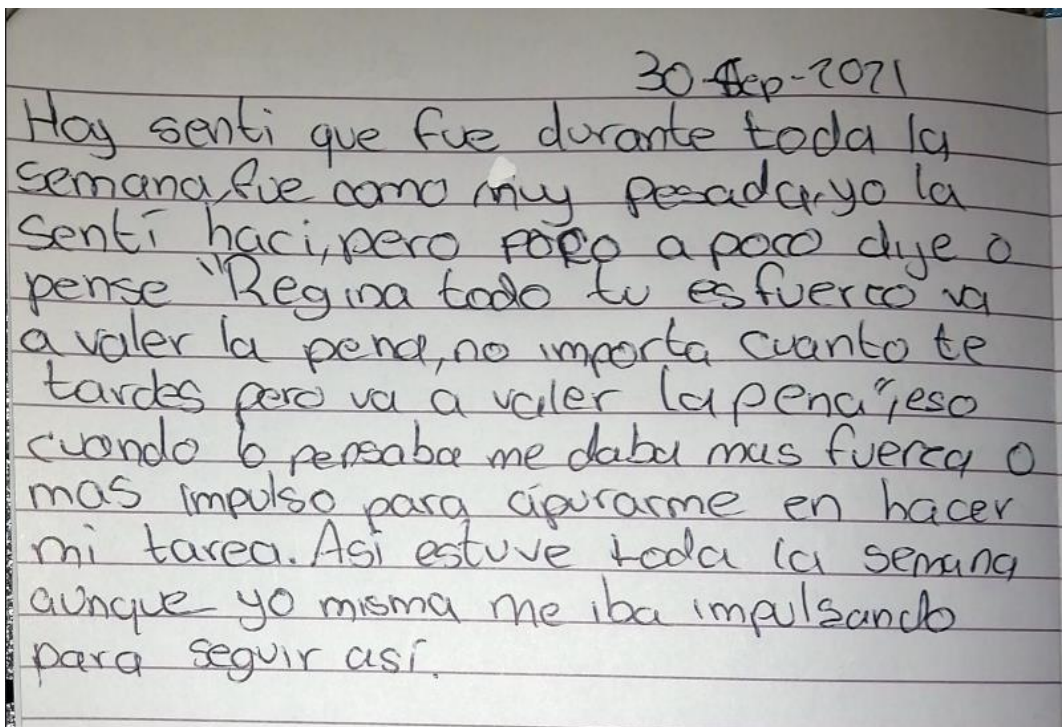 30-Sep-2021
Hoy senti que fue durante toda la
semana, fue como muy pesada, yo la
sentí haci, pero poco a poco dije o
pense "Regina todo tu esfuerzo va
a valer la pena, no importa cuanto te
tardes pero va a valer la pena", eso
cuando lo pensaba me daba mas fuerza o
mas impulso para apurarme en hacer
mi tarea. Asi estuve toda la semana
aunque yo misma me iba impulsando
para seguir así.